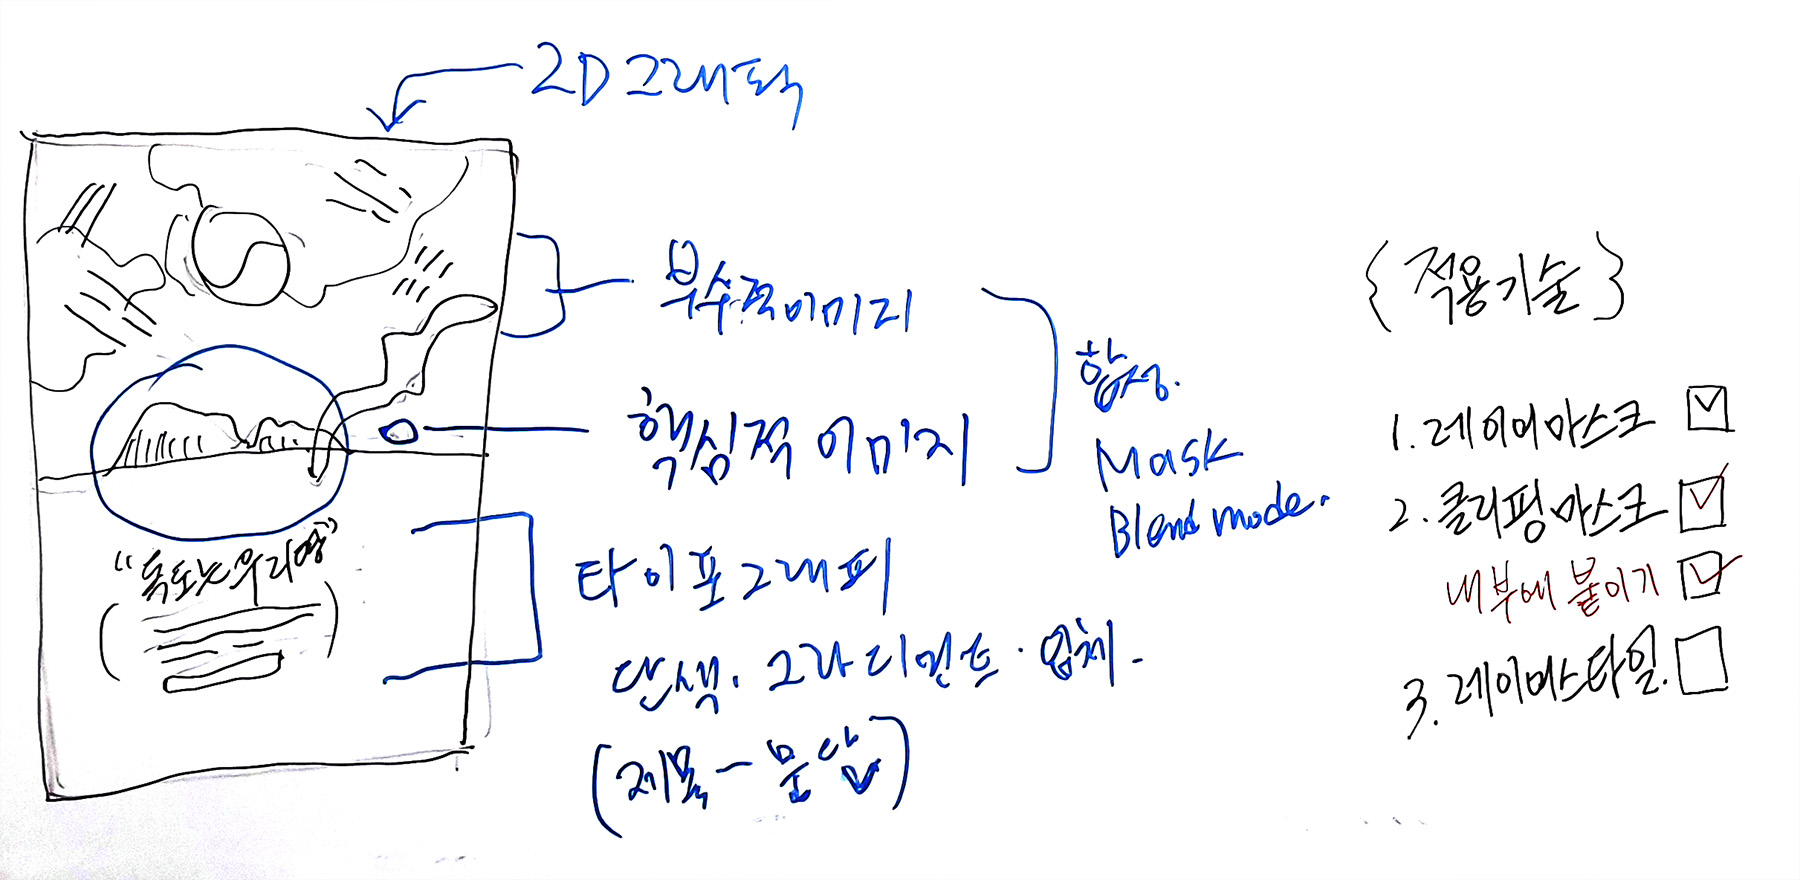 2D 그래픽
부수적이미지
핵심적 이미지
합성.
Mask
Blend mode.
"독도는우리땅"
타이포그래피
단색. 그라디언트. 입체.
(제목-본문)
{적용기술}
1. 레이어마스크
2. 클리핑마스크
내부에 붙이기
3. 레이어스타일.